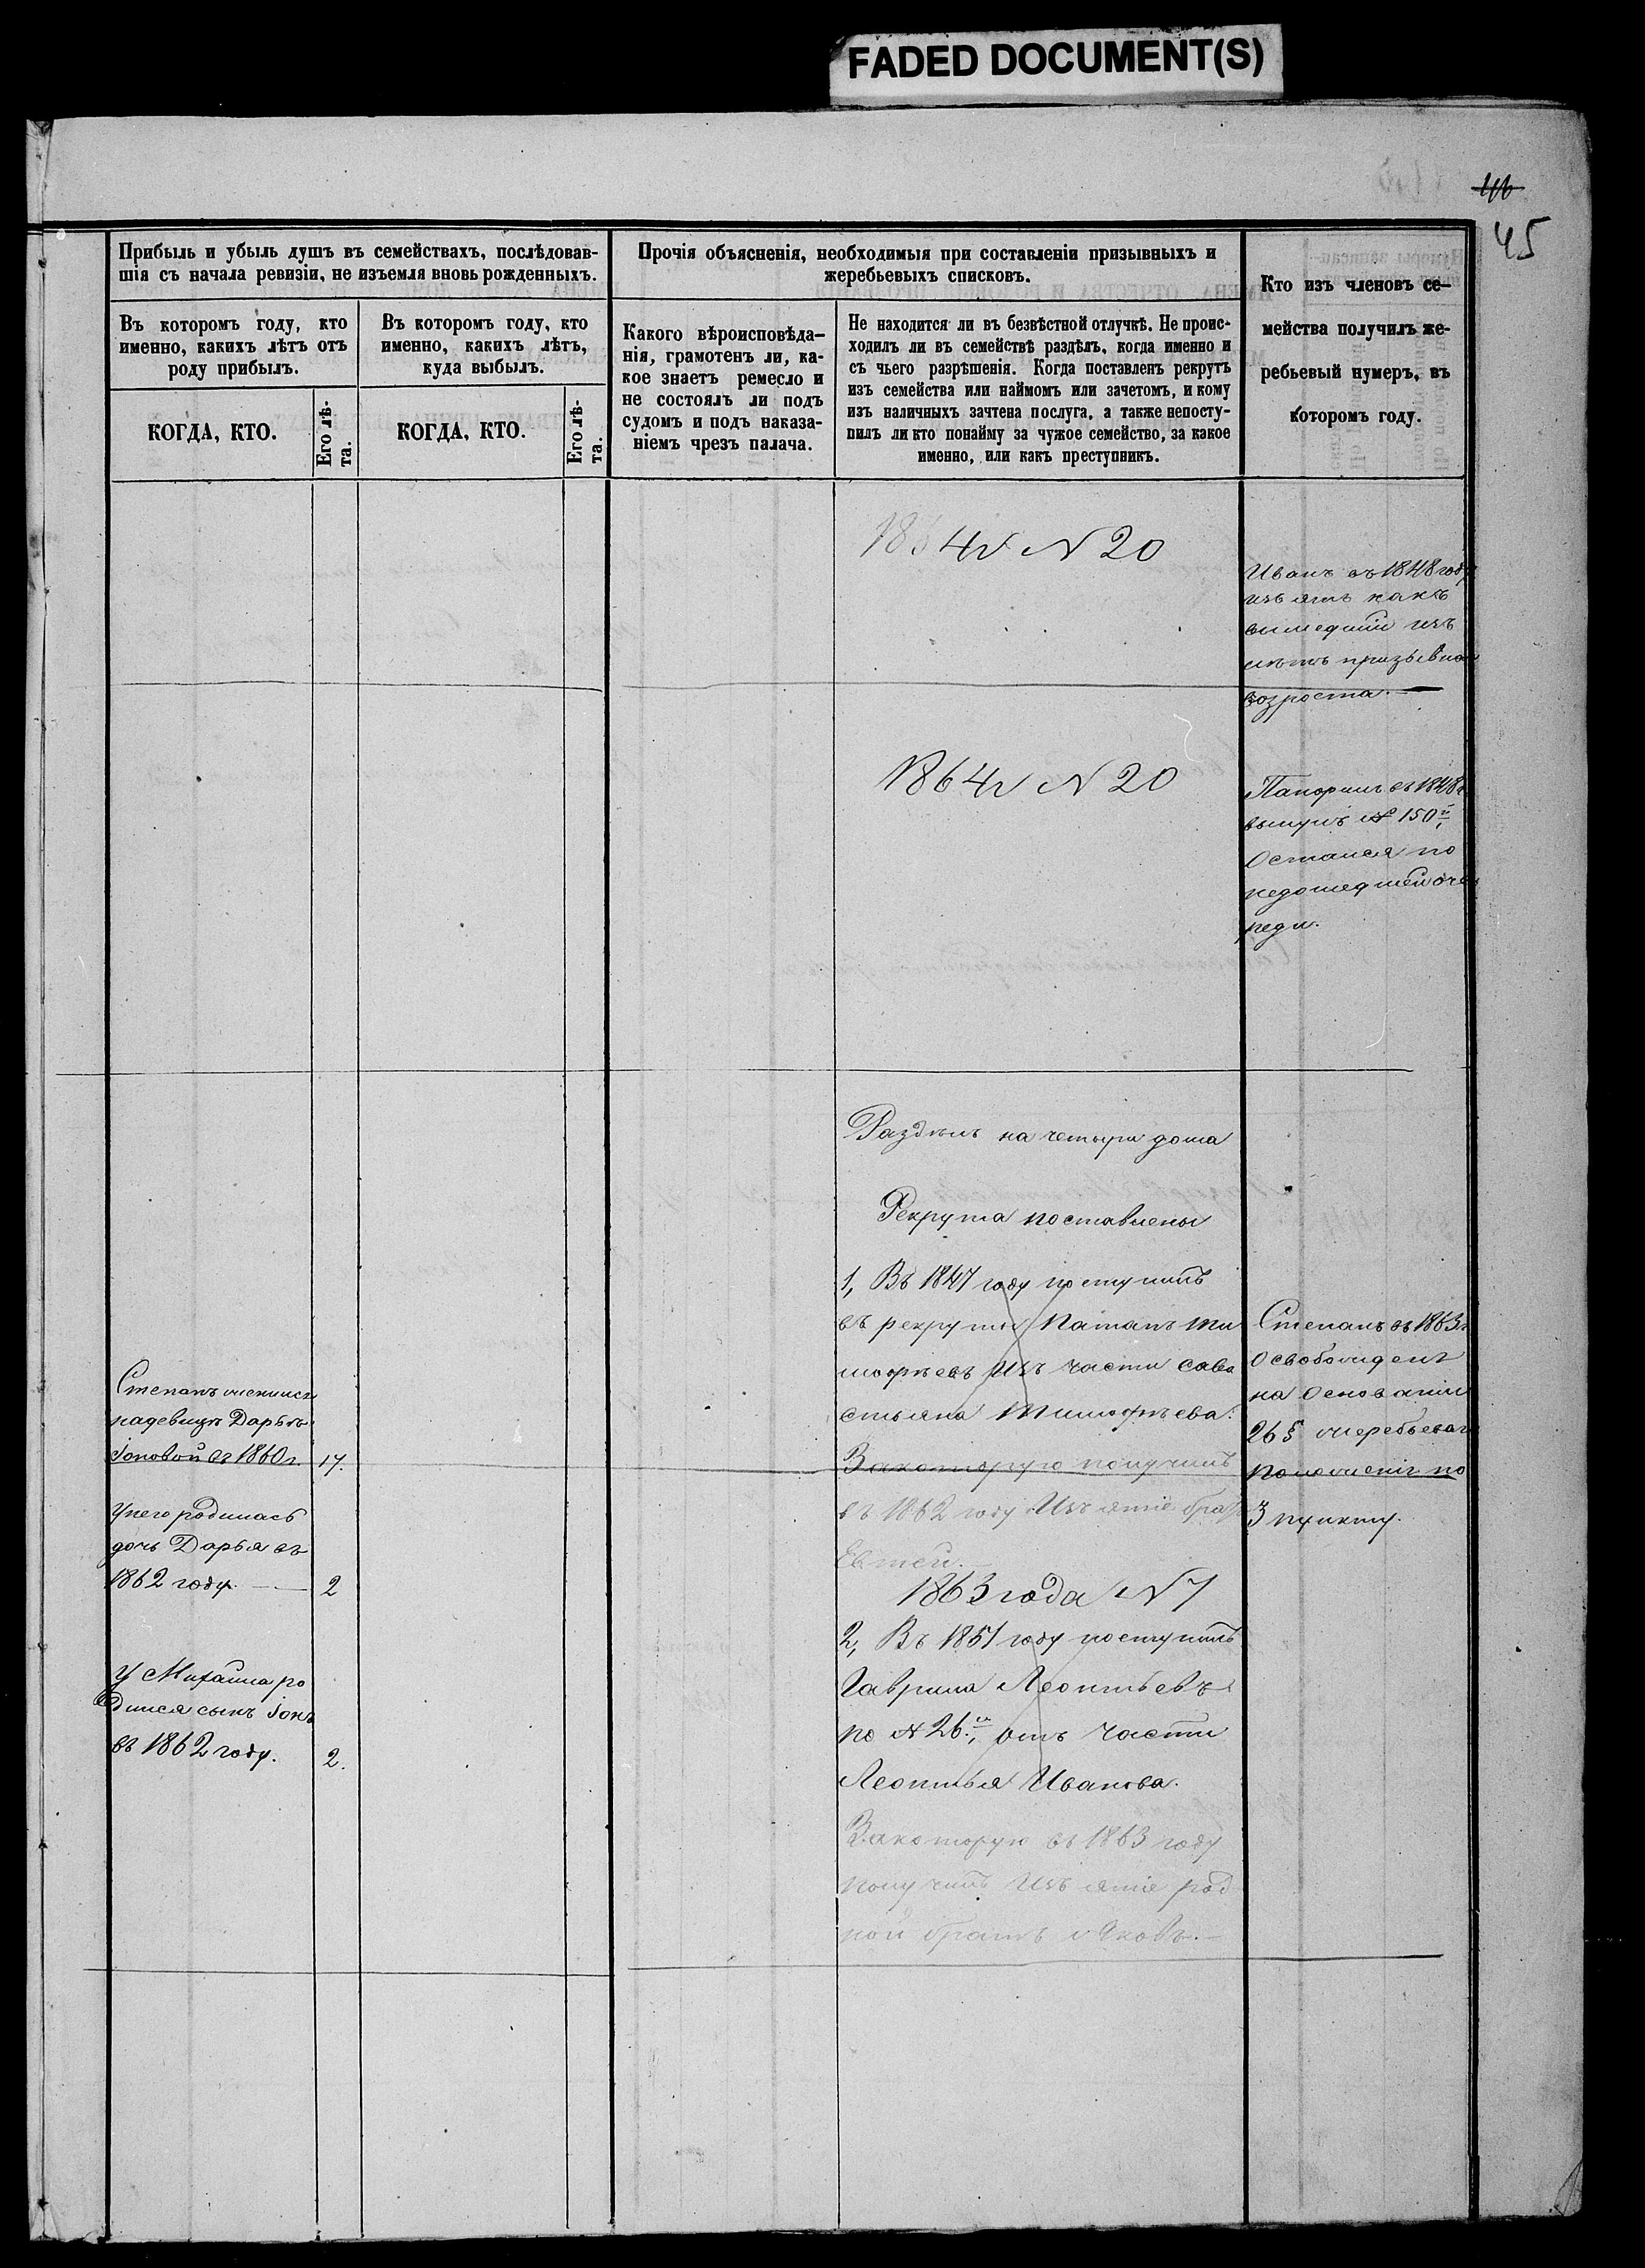 FADED DOCUMENT(S)
46
45
Прибыль и убыль душъ въ семействахъ, послѣдовав-
шія съ начала ревизіи, не изъемля вновь рожденныхъ.
Въ которомъ году, кто
именно, какихъ лѣтъ отъ
роду прибылъ.
КОГДА, КТО.
Его лѣ-
та.
Въ которомъ году, кто
именно, какихъ лѣтъ,
куда выбылъ.
КОГДА, КТО.
Его лѣ-
та.
Прочія объясненія, необходимыя при составленіи призывныхъ и
жеребьевыхъ списковъ.
Какого вѣроисповѣда-
нія, грамотенъ ли, ка-
кое знаетъ ремесло и
не состоялъ ли подъ
судомъ и подъ наказа-
ніемъ чрезъ палача.
Не находится ли въ безвѣстной отлучкѣ. Не проис-
ходилъ ли въ семействѣ раздѣлъ, когда именно и
съ чьего разрѣшенія. Когда поставленъ рекрутъ
изъ семейства или наймомъ или зачетомъ, и кому
изъ наличныхъ зачтена послуга, а также непосту-
пилъ ли кто понайму за чужое семейство, за какое
именно, или какъ преступникъ.
Кто изъ членовъ се-
мейства получилъ же-
ребьевый нумеръ, въ
которомъ году.
1864 N 20
Иванъ въ 1848 году
изъятъ какъ
вышедшій изъ
лѣтъ призывнаго
возроста.
1864 N 20
въ 1848 г.
вынулъ № 150й,
Остался по
недошедшей оче
реди.
Раздѣлъ на четыри дома
Рекрута поставлены
1, Въ 1847 году поступилъ
въ рекруты Ти
мофѣевъ Изъ части Сава
стьяна Тимофѣева.
Закоторую получилъ
въ 1862 году Изъятіе братъ
Евтей.
1863 года N 7
2, Въ 1851 году поступилъ
Гаврила Леонтьевъ
по № 26й, отъ части
Леонтья Иванова.
Закоторую въ 1863 году
получилъ Изъятіе род
ной братъ Яковъ.
Степанъ женился
надевицѣ Дарьѣ
Іоновой въ 1860 г. 17.
Унего родилась
дочь Дарья въ
1862 году. 2
У Михаила ро
дился сынъ Іонъ
въ 1862 году. 2.
Степанъ въ 1863 г.
Освобожденъ
на Основаніи
26 § жеребьеваго
положенія по
3 пункту.